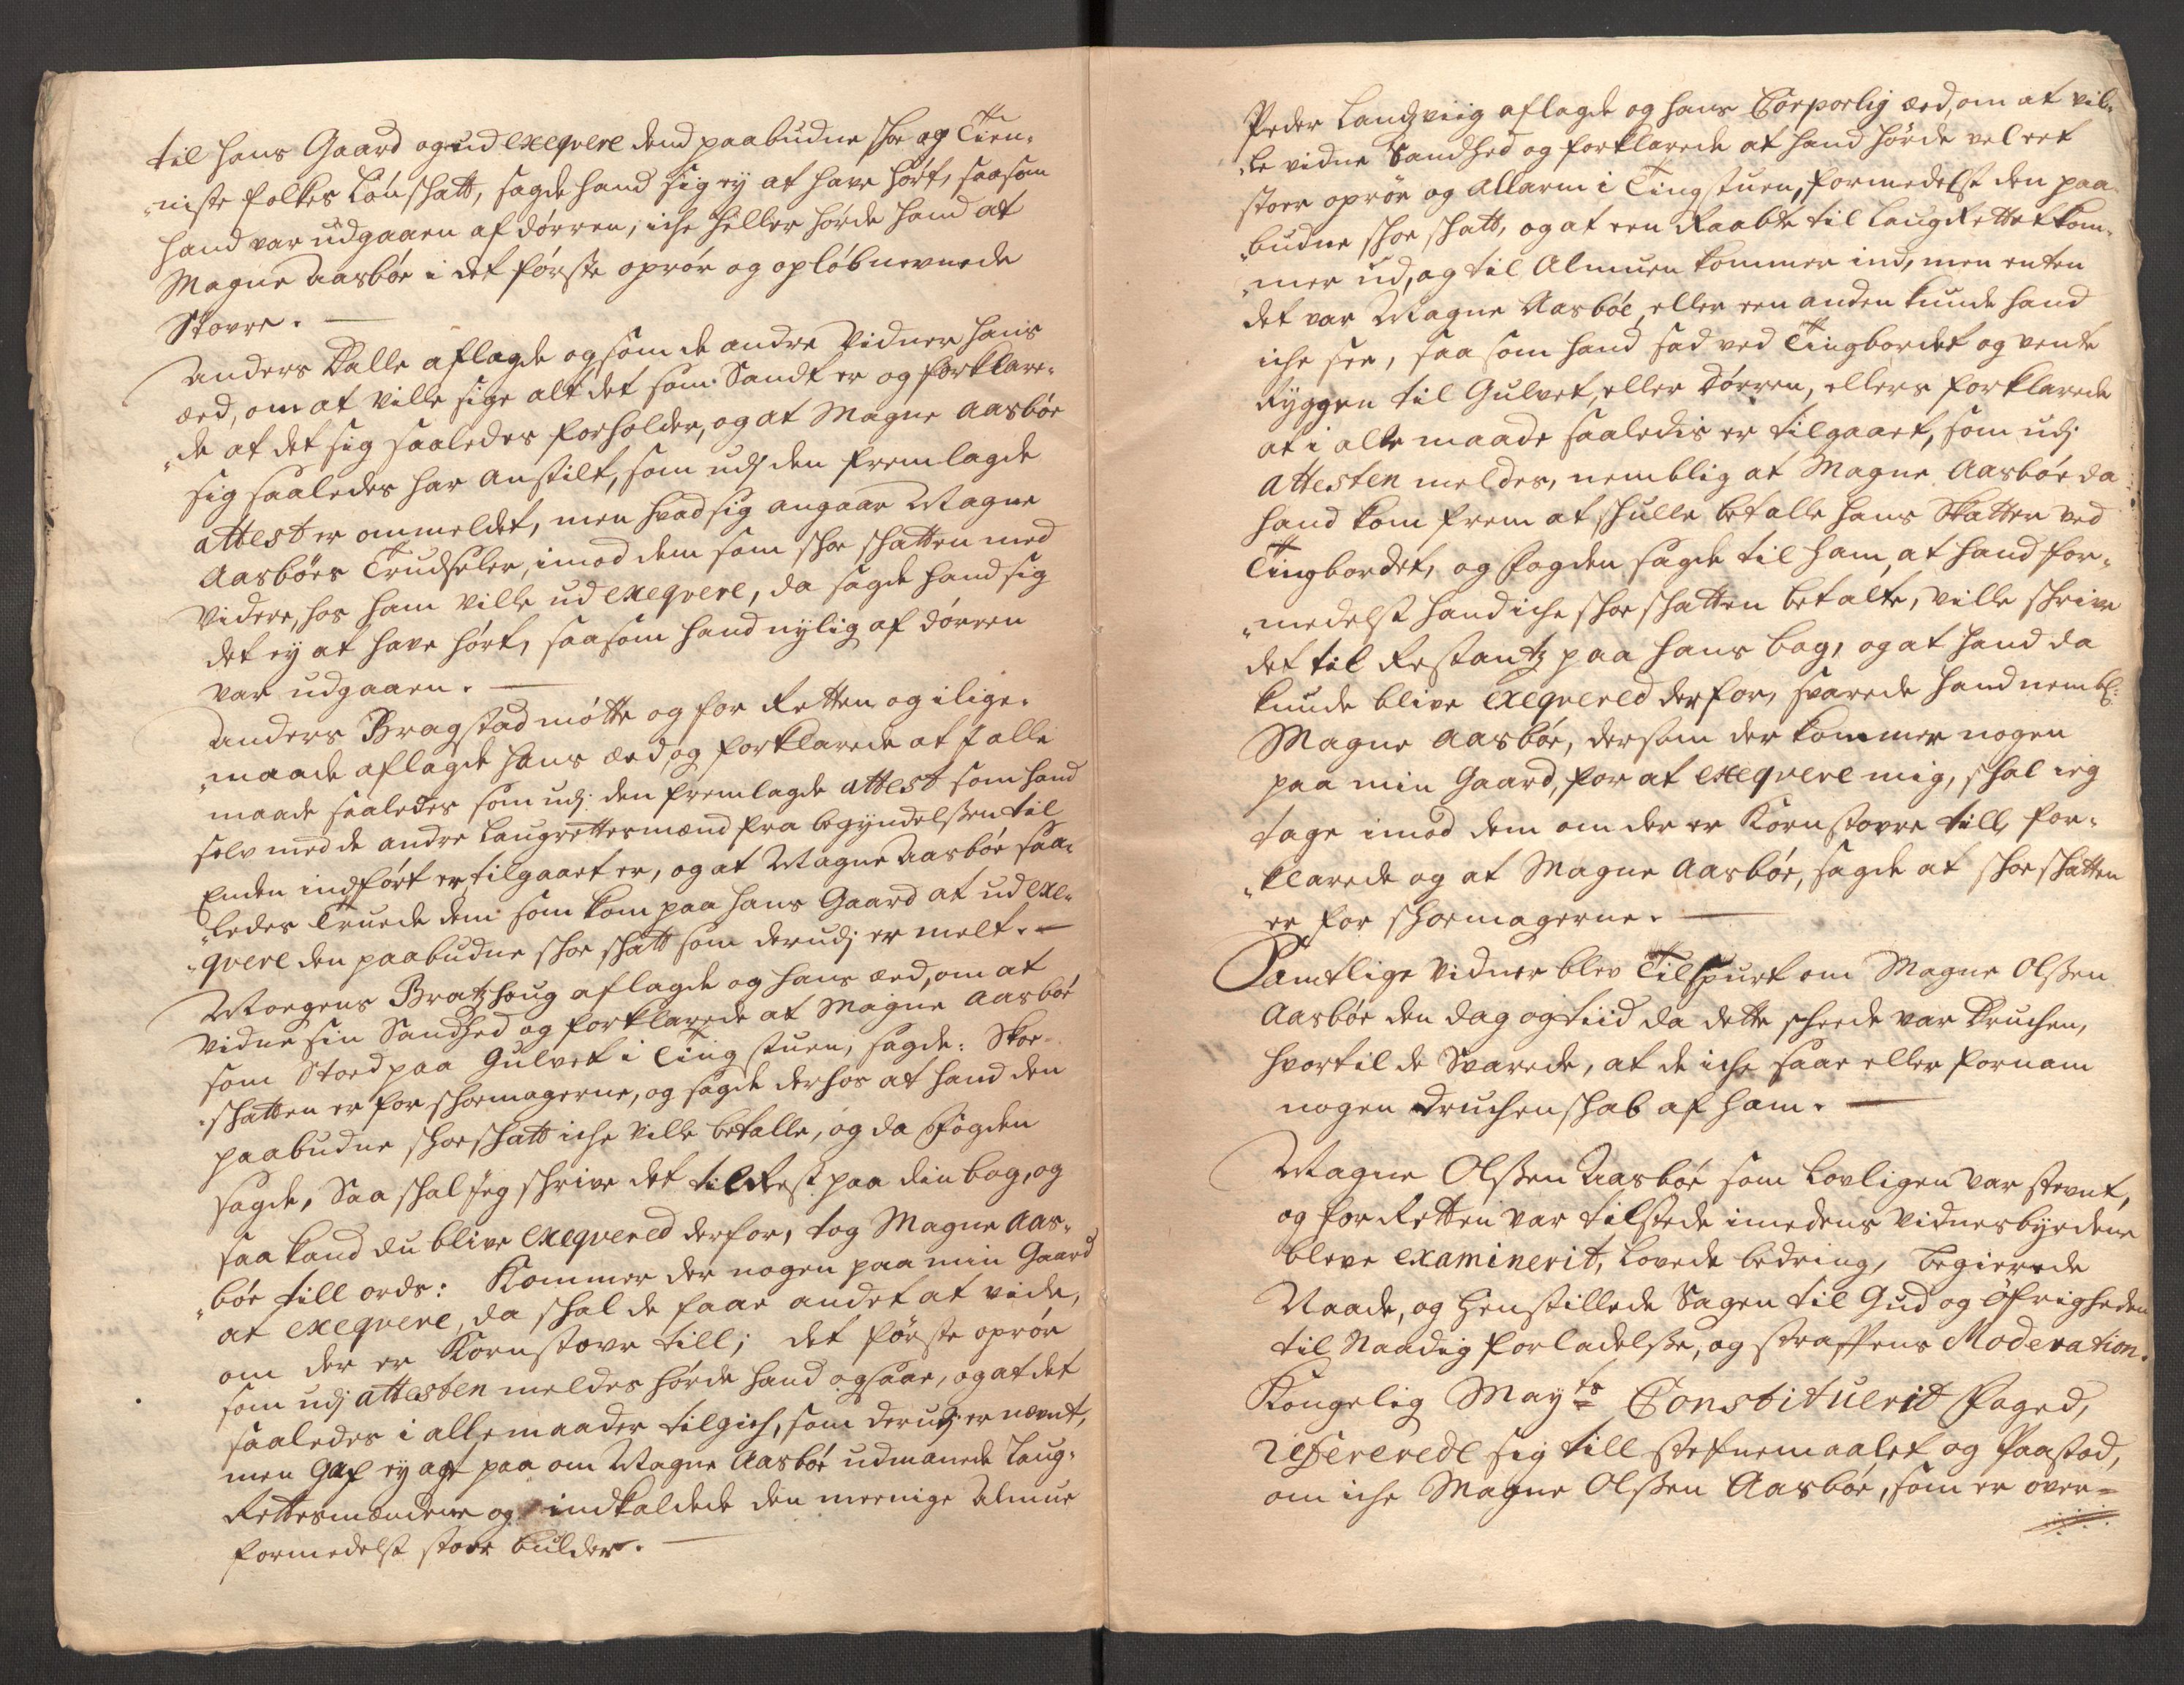 til hans Gaard og ud exeqvere dend paabudne schoe og Tien-
niste folkes Lönschatt, sagde hand sig ey at have hört, saasom
hand var udgaaen af dörren, iche heller hörde hand at
Magne Aasböe i det förste oprör og oplöb nevnede
Stovre.
Anders Dalle aflagde og som de andre Vidner hans
æd, om at ville sige alt det som Sandt er og forklare-
de at det sig saaledes forholder, og at Magne Aasböe
sig saaledes har anstilt, som udj den fremlagde
attest er ommeldet, men hvad sig angaar Magne
Aasböes Trudseler, imod dem som schoe schatten med
Videre, hos ham ville ud exeqvere, da sagde hand sig
det ey at have hört, saasom hand nylig af dörren
var udgaaen.
Anders Bragstad mötte og for Retten og ilige-
maade aflagde hans æd, og forklarede at J alle
maade saaledes som udj den fremlagde attest som hand
selv med de andre Laugrettesmænd fra begyndelssen til
Enden indfört er, tilgaaet er, og at Magne Aasböe saa-
ledes Truede dem som kom paa hans Gaard at ud exe-
qvere den paabudne schoe schatt som derudj er melt.
Moegens Bratzhoug aflagde og hans æd, om at
vidne sin Sandhed og forklarede at Magne Aasböe
som Stoed paa Gulvet i Ting stuen, sagde: Skoe-
schatten er for schoemagerne, og sagde derhos at hand den
paabudne schoeschatt iche ville betalle, og da Fogden
sagde, Saa schal Jeg schrive det til Rest paa din bog, og
saa kand du blive exeqvered derfor, tog Magne Aas-
böe till ords: Kommer der nogen paa min Gaard
at exeqvere, da schal de faae andet at vide,
om der er Kornstovr till; det förste oprör
som udj attesten meldes hörde hand ogsaae, og at det
saaledes i alle maader tilgich, som derudj er nevnt,
men Gaf ey agt paa om Magne Aasböe udmanede Laug-
Rettesmændene og indkaldede den meenige Almue
formedelst stoer bulder.
Peder Landzviig aflagde og hans Corporlig æd, om at vil-
le vidne Sandhed og forklarede at hand hörde vel eet
stoer oprör og Allarm i Tingstuen, formedelst den paa-
budne schoe schatt, og at een Raabte til LaugRettet kom-
mer ud, og til Almuen kommer ind, men enten
det var Magne Aasböe, eller een anden kunde hand
iche see, saa som hand sad ved Tingbordet og vente
Ryggen til Gulvet, eller Dörren, ellers forklarede
at i alle maade saaledis er tilgaaet, som udj
attesten meldes, nemblig at Magne Aasböe da
hand kom frem at schulle betalle hans Skatter ved
Tingbordet, og fogden sagde til ham, at hand for-
medelst hand iche schoe schatten betalte, ville schrive
det til Restantz paa hans bog, og at hand da
kunde blive exeqvered derfor, svarede hand nembl:
Magne Aasböe, dersom der kommer nogen
paa min Gaard, for at exeqvere mig, schal ieg
tage imod dem om der er Kornstovre till, for-
klarede og at Magne Aasböe, sagde at schoeschatten
er for schoemagerne.
Samtlige Vidner blev Tilspurt om Magne Olssen
Aasböe den dag og tiid da dette scheede var Druchen,
hvortil de Svarede, at de iche saae eller fornam
nogen Druchenschab af ham.
Magne Olssen Aasböe som Lovligen var stevnt,
og for Retten var tilstede imedens vidnesbyrdene
bleve examinerit, lovede bedring, begierede
Naade, og henstillede Sagen til Gud og Öfrigheden
til Naadig forladelsse, og straffens Moderation.
Kongelig Mayts Constituerit Foged,
refererede sig till stefnemaalet og Paastod,
om iche Magne Olssen Aasböe, som er over-